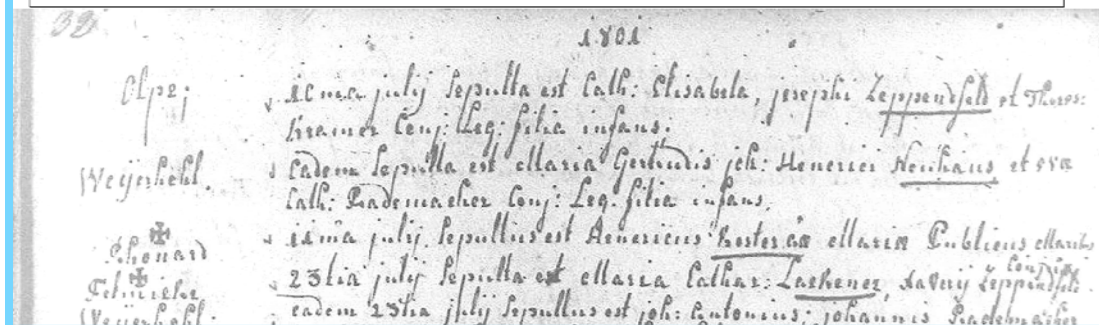 32
1801
Olpe; 10ma julij Sepulta est Cath: Elisabeta, josephi Zeppenfeld et Theres:
Kramer Conj: Leg: filia infans.
Weijerhohl. Eadem Sepulta est Maria Gertrudis joh: Henerici Neuhaus et eva
Cath: Rademacher Conj: Leg. filia infans.
julij. Sepultus est Henericus Koster Maria
23tia julij Sepulta est Maria Cathar: Xaverij Zeppenfeld.
Weijerhohl. eadem 23tia julij Sepultus est joh: antonius; johannis Rademacher